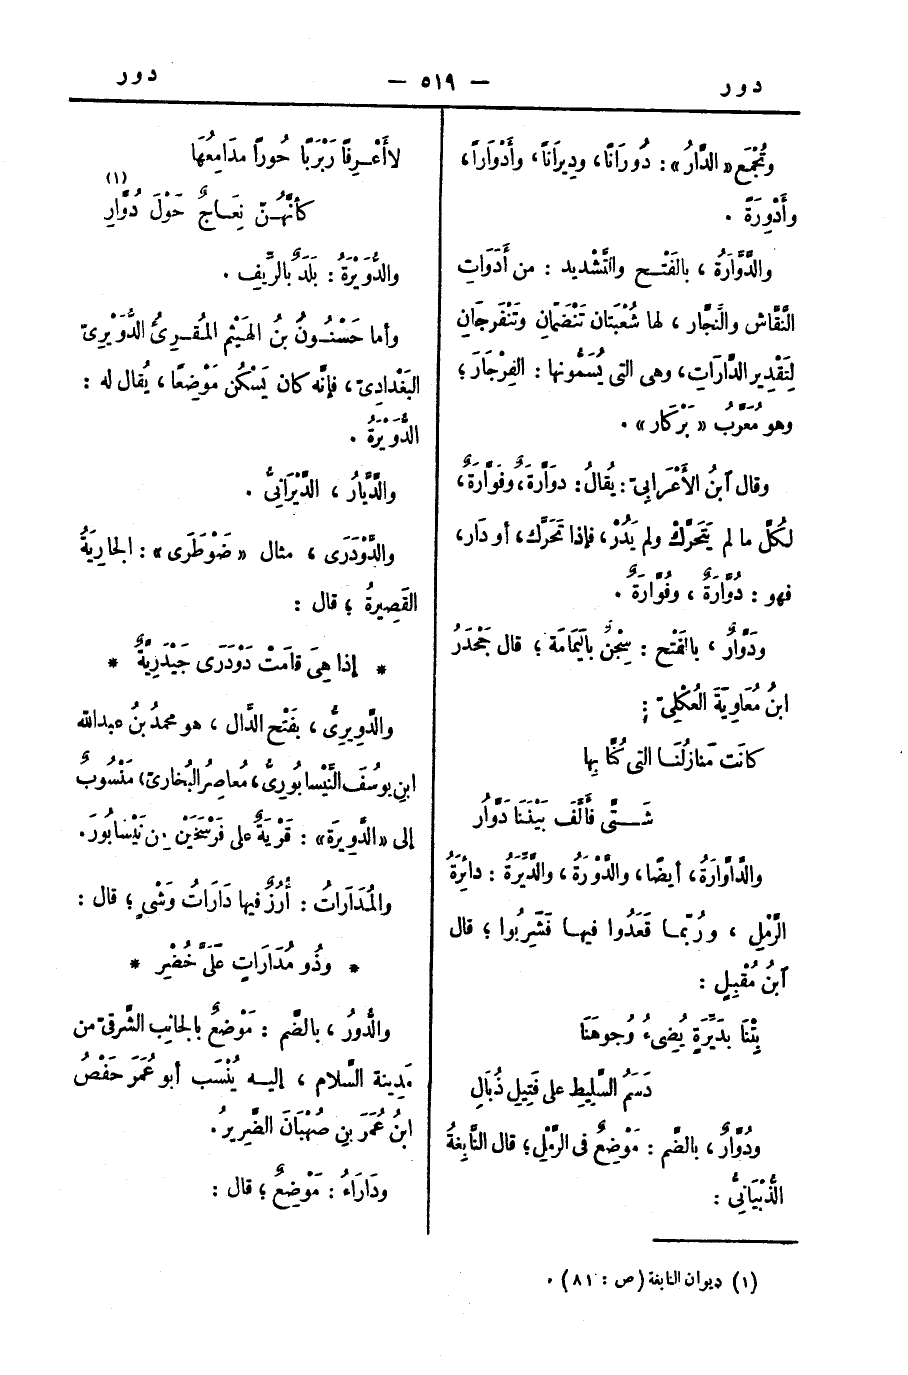 دور
— ٥١٩ —
دور
وتُجْمَع «الدَّارُ»: دُورَانًا، ودِيرَانًا، وأَدْوَاراً،
وأَدْوِرَةً .
والدَّوَّارَةُ ، بالفَتْـح والتَّشْديد : من أَدَوَاتِ
النَّقَّاش والنَّجَّار ، لها شُعْبَتَان تَنْضَمّانِ وتَنْفَرِجَانِ
لِتَقْدِير الدَّارَاتِ، وهى التى يُسَمُّونها : الفِرْجَارَ ؛
وهو مُعَرَّبُ « بَرْكَار» .
وقال ابنُ الأَعْرَابِىّ: يُقَالُ: دوَّارَةٌ، وفَوَّارَةٌ،
لكُلِّ ما لم يَتَحَرَّكْ ولم يَدُرْ، فإذا تَحَرَّك، أو دَار،
فهو : دُوَّارَةٌ ، وفُوَّارَةٌ .
ودَوَّارٌ ، بالفَتْح : سِجْنٌ باليَمَامَة ؛ قال جَحْدَرُ
ابنُ مُعَاوِيَةَ العُكْلِىّ :
كَانَت مَنازِلُنَـا التى كُنَّا بِها
شَـــتَّى فأَلَّفَ بَيْنَنَا دَوَّارُ
والدَّاوَارَةُ، أيضًا، والدَّوْرَةُ، والدَّيِّرَةُ : دائِرَةُ
الرَّمْلِ ، ورُبّمـا قَعَدُوا فيهـا فَشَرِبُوا ؛ قال
ابنُ مُقْبِلٍ :
بِتْنَا بدَيِّرَةٍ يُضِىءُ وُجوهَنَا
دَسَمُ السَّلِيطِ على فَتِيلِ ذُبَالِ
ودُوَّارٌ ، بالضَّم : مَوْضِعٌ فى الرَّمْلِ؛ قال النَّابِغةُ
الذُّبْيَانِىُّ :
لا أَعْـرِفًا رَبْرَبًا حُوراً مدَامِعُهَا
كأنَّهُـنّ نِعَـاجٌ حَوْلَ دُوَّارِ (١)
والدُّوَيْرَةُ : بَلَدٌ بالرِّيفِ .
وأما حَسْنُـونُ بنُ الهَيْثِم المُقـرِئُ الدُّوَيْرِىّ
البَغْدادِىّ، فإنَّه كان يَسْكُن مَوْضِعًا، يُقال له :
الدُّوَيْرَةُ .
والدَّيَّارُ ، الدَّيْرَانِىُّ .
والدَّوْدَرَى ، مثال « ضَوْطَرَى» : الجَارِيَةُ
القَصِيرةُ ؛ قال :
* إذا هِىَ قامَتْ دَوْدَرَى جَيْدَرِيَّةٌ *
والدَّوِيرِىُّ ، بفَتْح الدَّال ، هو محمدُ بنُ عبدالله
ابنِ يوسُفَ النَّيْسابُورِىُّ، مُعاصِرُ البُخارىّ، مَنْسُوبٌ
إلى «الدَّوِيرَة» : قَرْيَةٌ على فَرْسَخَيْن من نَيْسَابُورَ.
والمُدَارَاتُ : أُزُرٌ فيها دَارَاتُ وَشْىٍ ؛ قال :
* وذُو مُدَارَاتٍ عَلَىَّ خُضْرِ *
والدُّورُ ، بالضَّم : مَوْضعٌ بالجانِب الشَّرْقىّ من
مَدِينة السَّلام ، إليـه يُنْسَب أبو عُمَرَ حَفْصُ
ابنُ عُمَرَ بنِ صُهْبَانَ الضَّرِيرُ .
ودَارَاءُ : مَوْضِعٌ ؛ قال :
(١) ديوان النابغة (ص : ٨١) .